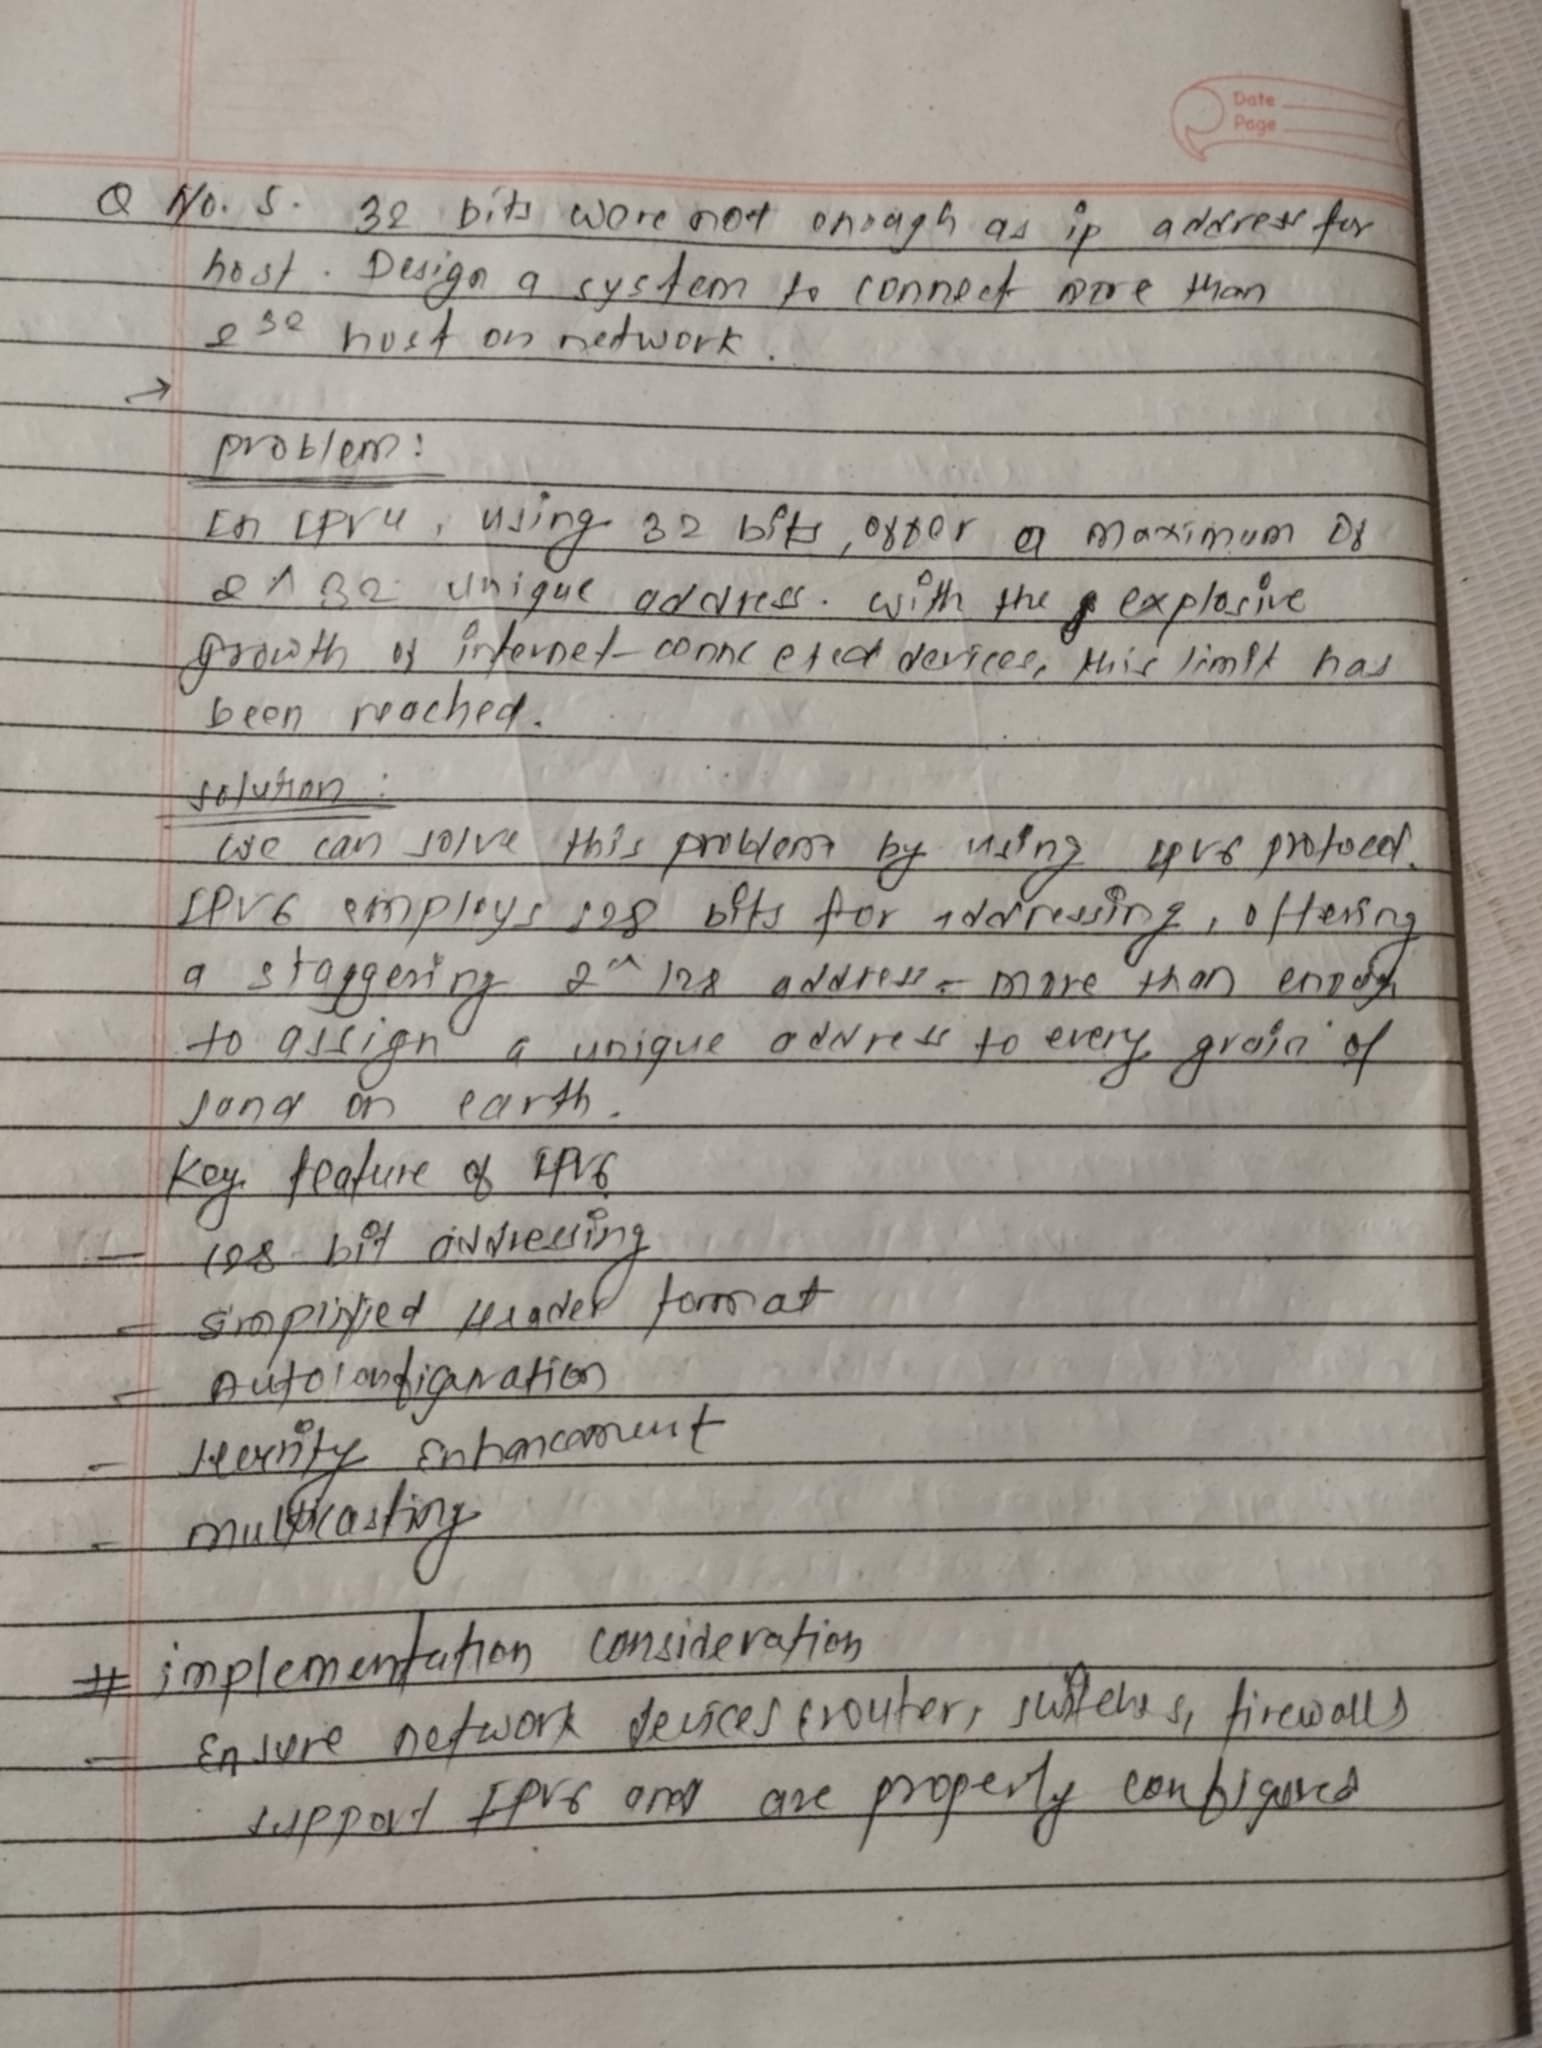 Date
Page
Q No. 5. 32 bits were not enough as ip address for
host. Design a system to connect more than
2^32 host on network.
→
problem:
In IPV4, using 32 bits, offer a maximum of
2^32 unique address. with the explosive
growth of internet-connected devices, this limit has
been reached.
solution:
we can solve this problem by using IPV6 protocol.
IPV6 employs 128 bits for addressing, offering
a staggering 2^128 address - more than enough
to assign a unique address to every grain of
sand on earth.
Key feature of IPV6
- 128-bit addressing
- simplified Header format
- Autoconfiguration
- Security Enhancement
- multicasting
# implementation consideration
- Ensure network devices (router, switches, firewalls
support IPV6 and are properly configured